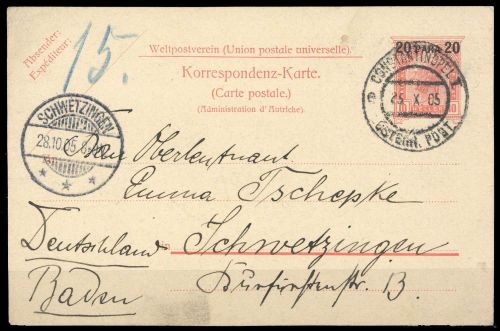 Absender:
Expéditeur:
15.
Weltpostverein (Union postale universelle).
Korrespondenz-Karte.
(Carte postale.)
(Administration d'Autriche.)
20 PARA 20
CONSTANTINOPEL I
25 X 05
ÖSTERR. POST
SCHWETZINGEN
28.10.05
Oberleutnant
Emma Tschepke
in Schwetzingen
Deutschland
Baden
Kurfürstenstr. 13.